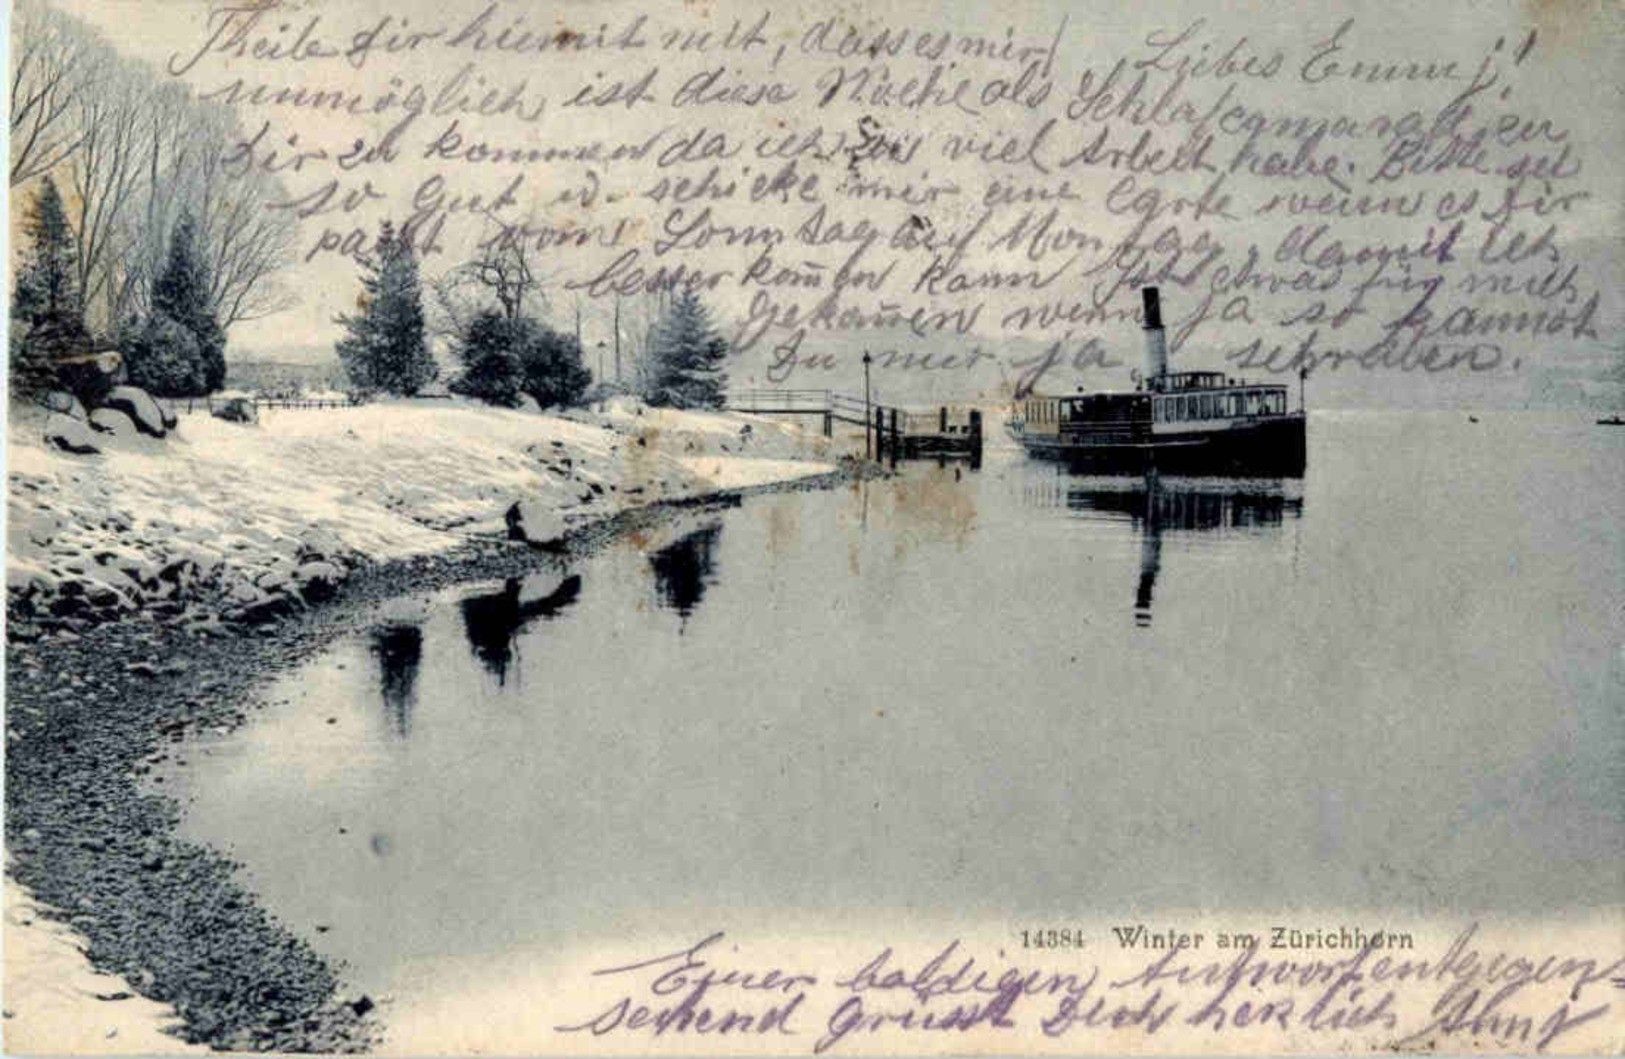 Liebes Emmy!
Theile dir hiemit mit, dass es mir
unmöglich ist diese Woche als Schlafcamarad zu
dir zu kommen da ich so viel Arbeit habe. Bitte sei
so gut u. schicke mir eine Carte wenn es dir
passt vom Sonntag auf Montag, damit ich
besser kom̅en kann Ist etwas für mich
gekom̅en wenn ja so kannst
Du mir ja schreiben.
14384 Winter am Zürichhorn
Einer baldigen Antwort entgegen-
sehend grüsst Dich herzlich Anny